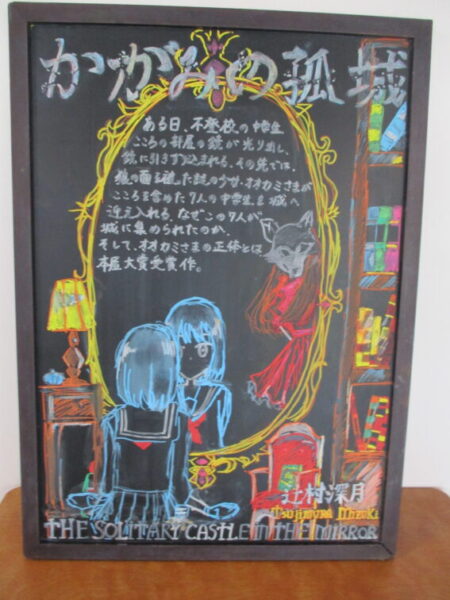 かがみの孤城
ある日、不登校の中学生
こころの部屋の鏡が光り出し、
鏡に引きずり込まれる。その先では、
狼の面を被った謎の少女、オオカミさまが
こころを含めた7人の中学生を城へ
迎え入れる。なぜこの7人が
城に集められたのか、
そして、オオカミさまの正体とは
本屋大賞受賞作。
辻村深月
Tsujimura Mizuki
THE SOLITARY CASTLE IN THE MIRROR